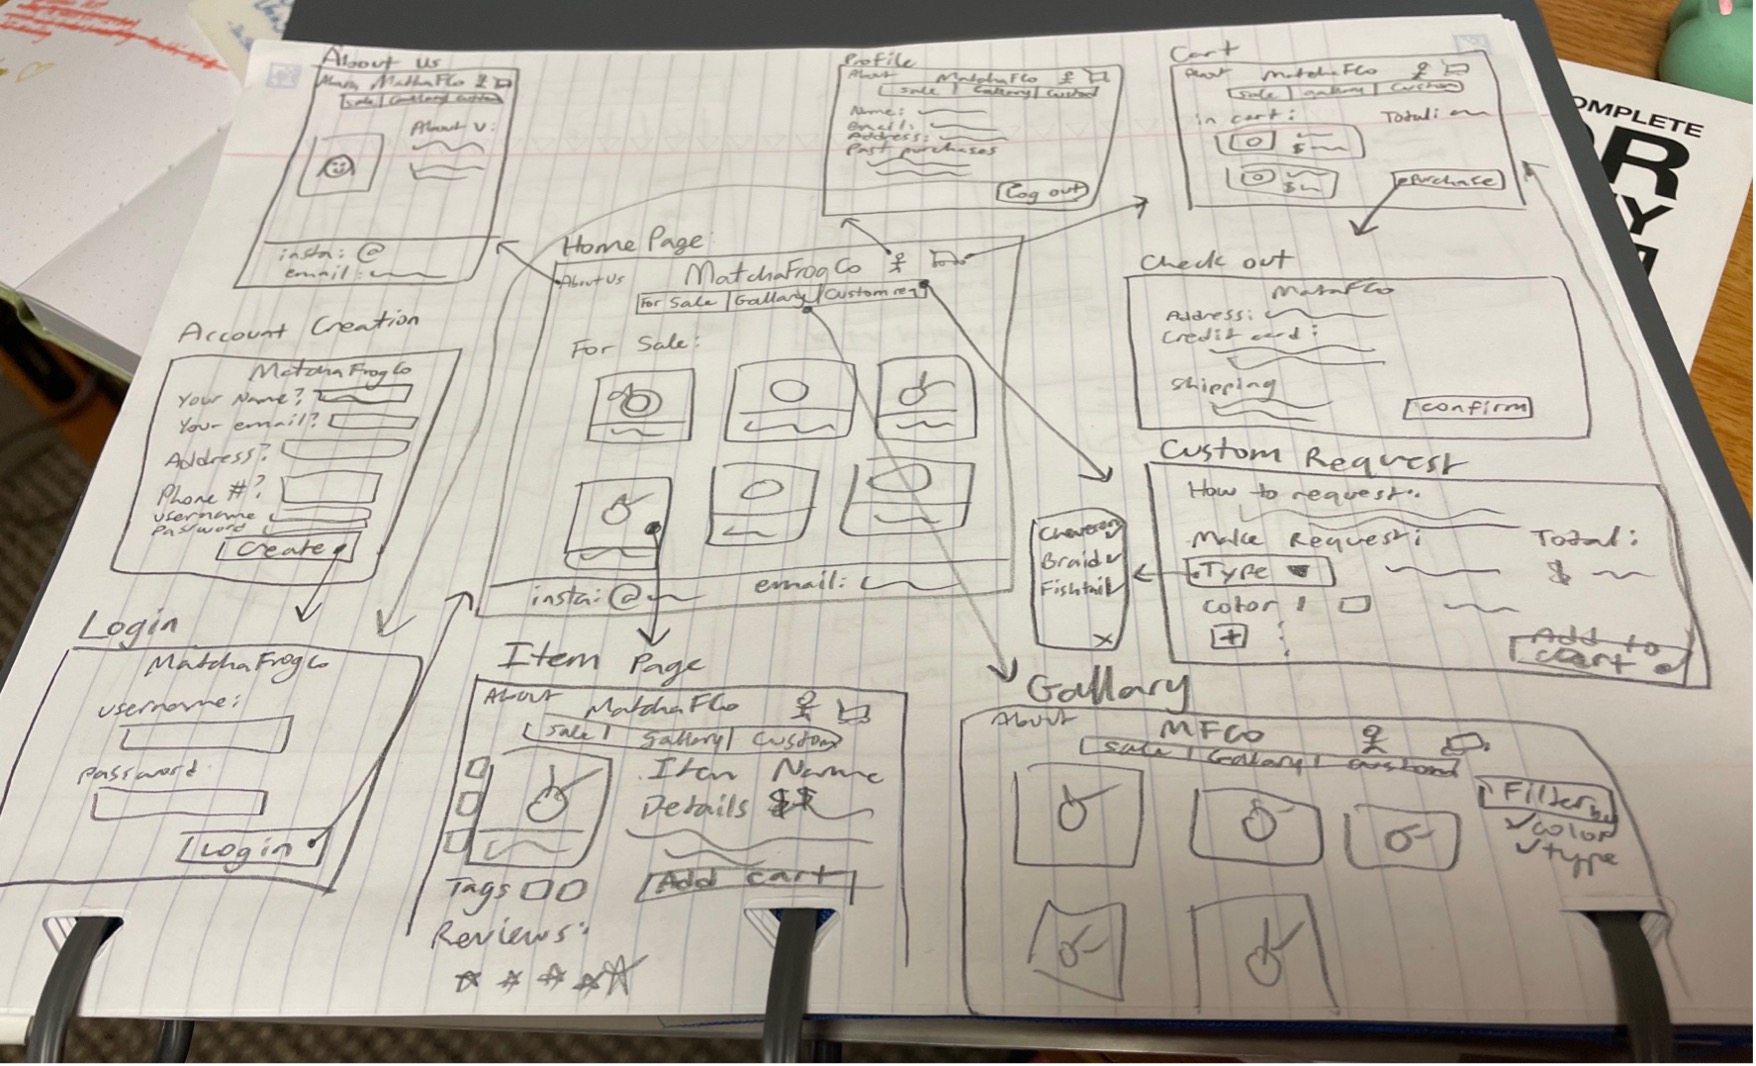 About Us
MatchaFCo
sale | Gallery | Custom
About U:
insta: @
email:
Profile
About MatchaFCo
sale | Gallery | Custom
Name:
email:
Address:
Past purchases
Log out
Cart
About MatchaFCo
sale | gallery | Custom
in cart:
Total:
$
$
Purchase
OMPLETE
Home Page
About Us MatchaFrogCo
For Sale | Gallary | Custom req
For Sale:
insta: @
email:
Check out
Address:
Credit card:
Shipping
confirm
Account Creation
MatchaFrogCo
Your Name?
Your email?
Address?
Phone #?
username
Password
Create
Custom Request
How to request:
Make Request:
Total:
Type
$
color 1
+
Add to
cart
Braid
Fishtail
x
Login
MatchaFrogCo
username:
password
Login
Item Page
About MatchaFCo
sale | gallery | Custom
Item Name
Details $$
Add cart
Tags
Reviews:
Gallary
About MFCo
sale | Gallery | custom
Filter
color
type